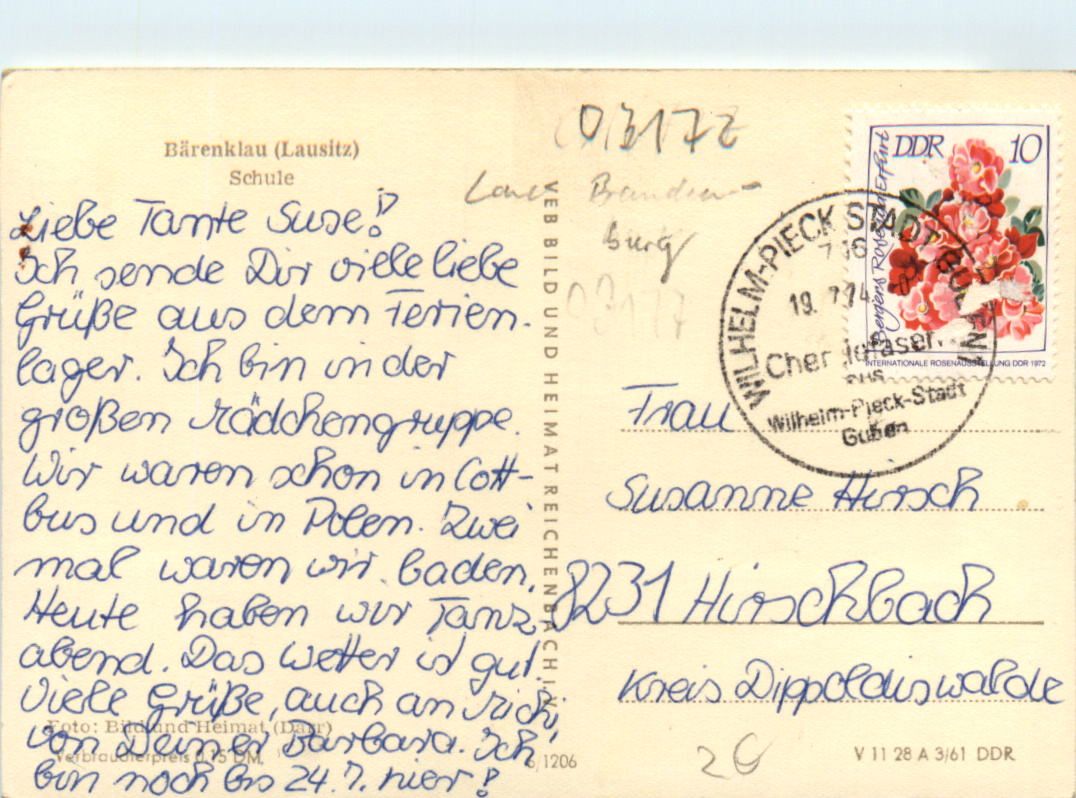 Bärenklau (Lausitz)
Schule
Liebe Tante Suse!
Ich sende Dir viele liebe
Grüße aus dem Ferien-
lager. Ich bin in der
großen Mädchengruppe.
Wir waren schon in Cott-
bus und in Polen. Zwei
mal waren wir baden.
Heute haben wir Tanz
abend. Das Wetter ist gut.
Viele Grüße, auch an
von Deiner Barbara. Ich
bin noch bis 24.7. hier!
Foto: Bild und Heimat (Darr)
Verbraucherpreis 0,15 DM
VEB BILD UND HEIMAT REICHENBACH I. V.
6/1206
03172
Branden
burg
03177
DDR 10
Bergers Rose Erfurt
INTERNATIONALE ROSENAUSSTELLUNG DDR 1972
WILHELM-PIECK-STADT GUBEN 1
19. 7. 74
Chemiefaser
aus
Wilhelm-Pieck-Stadt
Guben
Frau
Susanne Hirsch
8231 Hirschbach
Kreis Dippoldiswalde
V 11 28 A 3/61 DDR